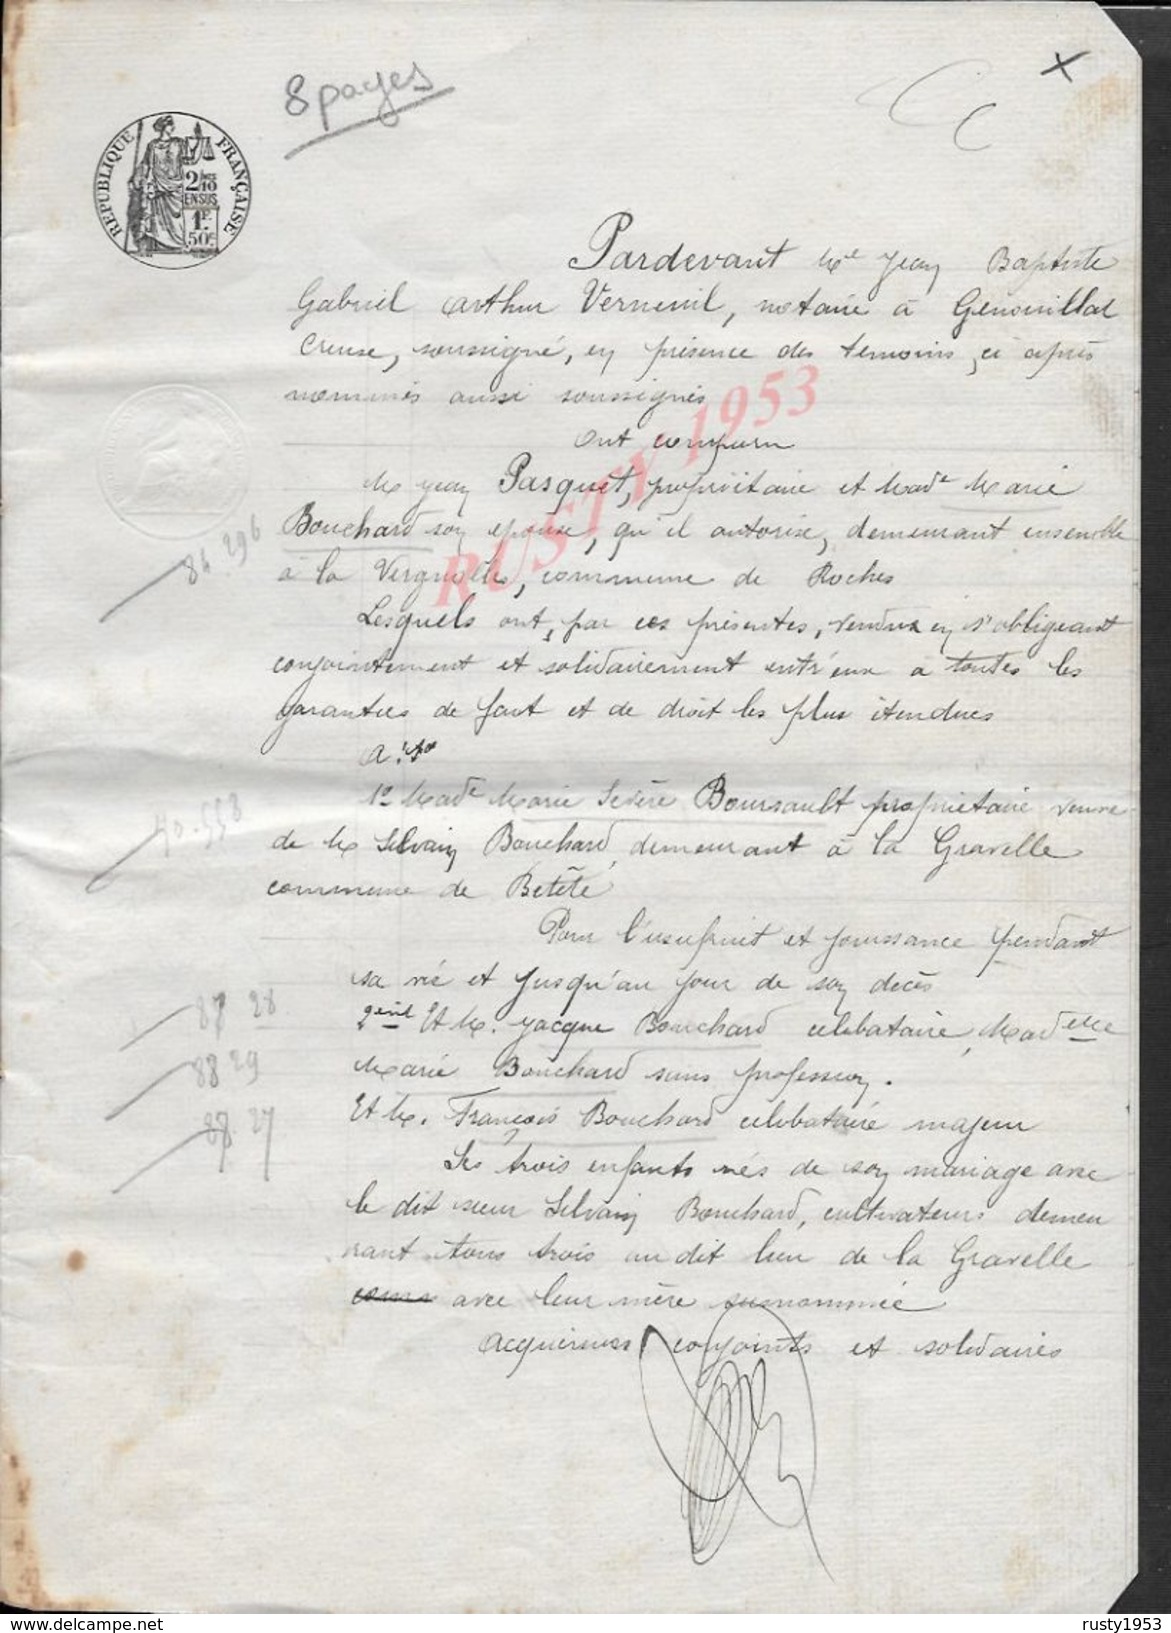 8 pages
RÉPUBLIQUE FRANÇAISE
2/10 EN SUS
1F. 50c
Pardevant Me Jean Baptiste
Gabriel Arthur Verneuil, notaire à Genouillat
Creuse, soussigné, en présence des temoins, ci après
nommés aussi soussignés
Ont comparu
M Jean Pasquet, propriétaire et Made Marie
Bouchard son epouse, qu'il autorise, demeurant ensemble
à la Vergnolle, commune de Roches
84. 296
Lesquels ont, par ces présentes, vendu en s'obligeant
conjointement et solidairement entr'eux à toutes les
garanties de fait et de droit les plus étendues
A :
1° Made Marie Sévère Boursault propriétaire veuve
de M Silvain Bouchard, demeurant à la Gravelle
commune de Bétête
Pour l'usufruit et jouissance pendant
sa vie et jusqu'au jour de son decès
87 28
2ent Et M. Jacque Bouchard célibataire, Madelle
Marie Bouchard sans profession.
88 29
Et M. François Bouchard célibataire majeur
88. 27
Les trois enfants nés de son mariage avec
le dit sieur Silvain Bouchard, cultivateurs demeu
rant tous trois au dit lieu de la Gravelle
avec leur mère susnommée
Acquéreurs conjoints et solidaires
RUSTY 1953
www.delcampe.net
rusty1953